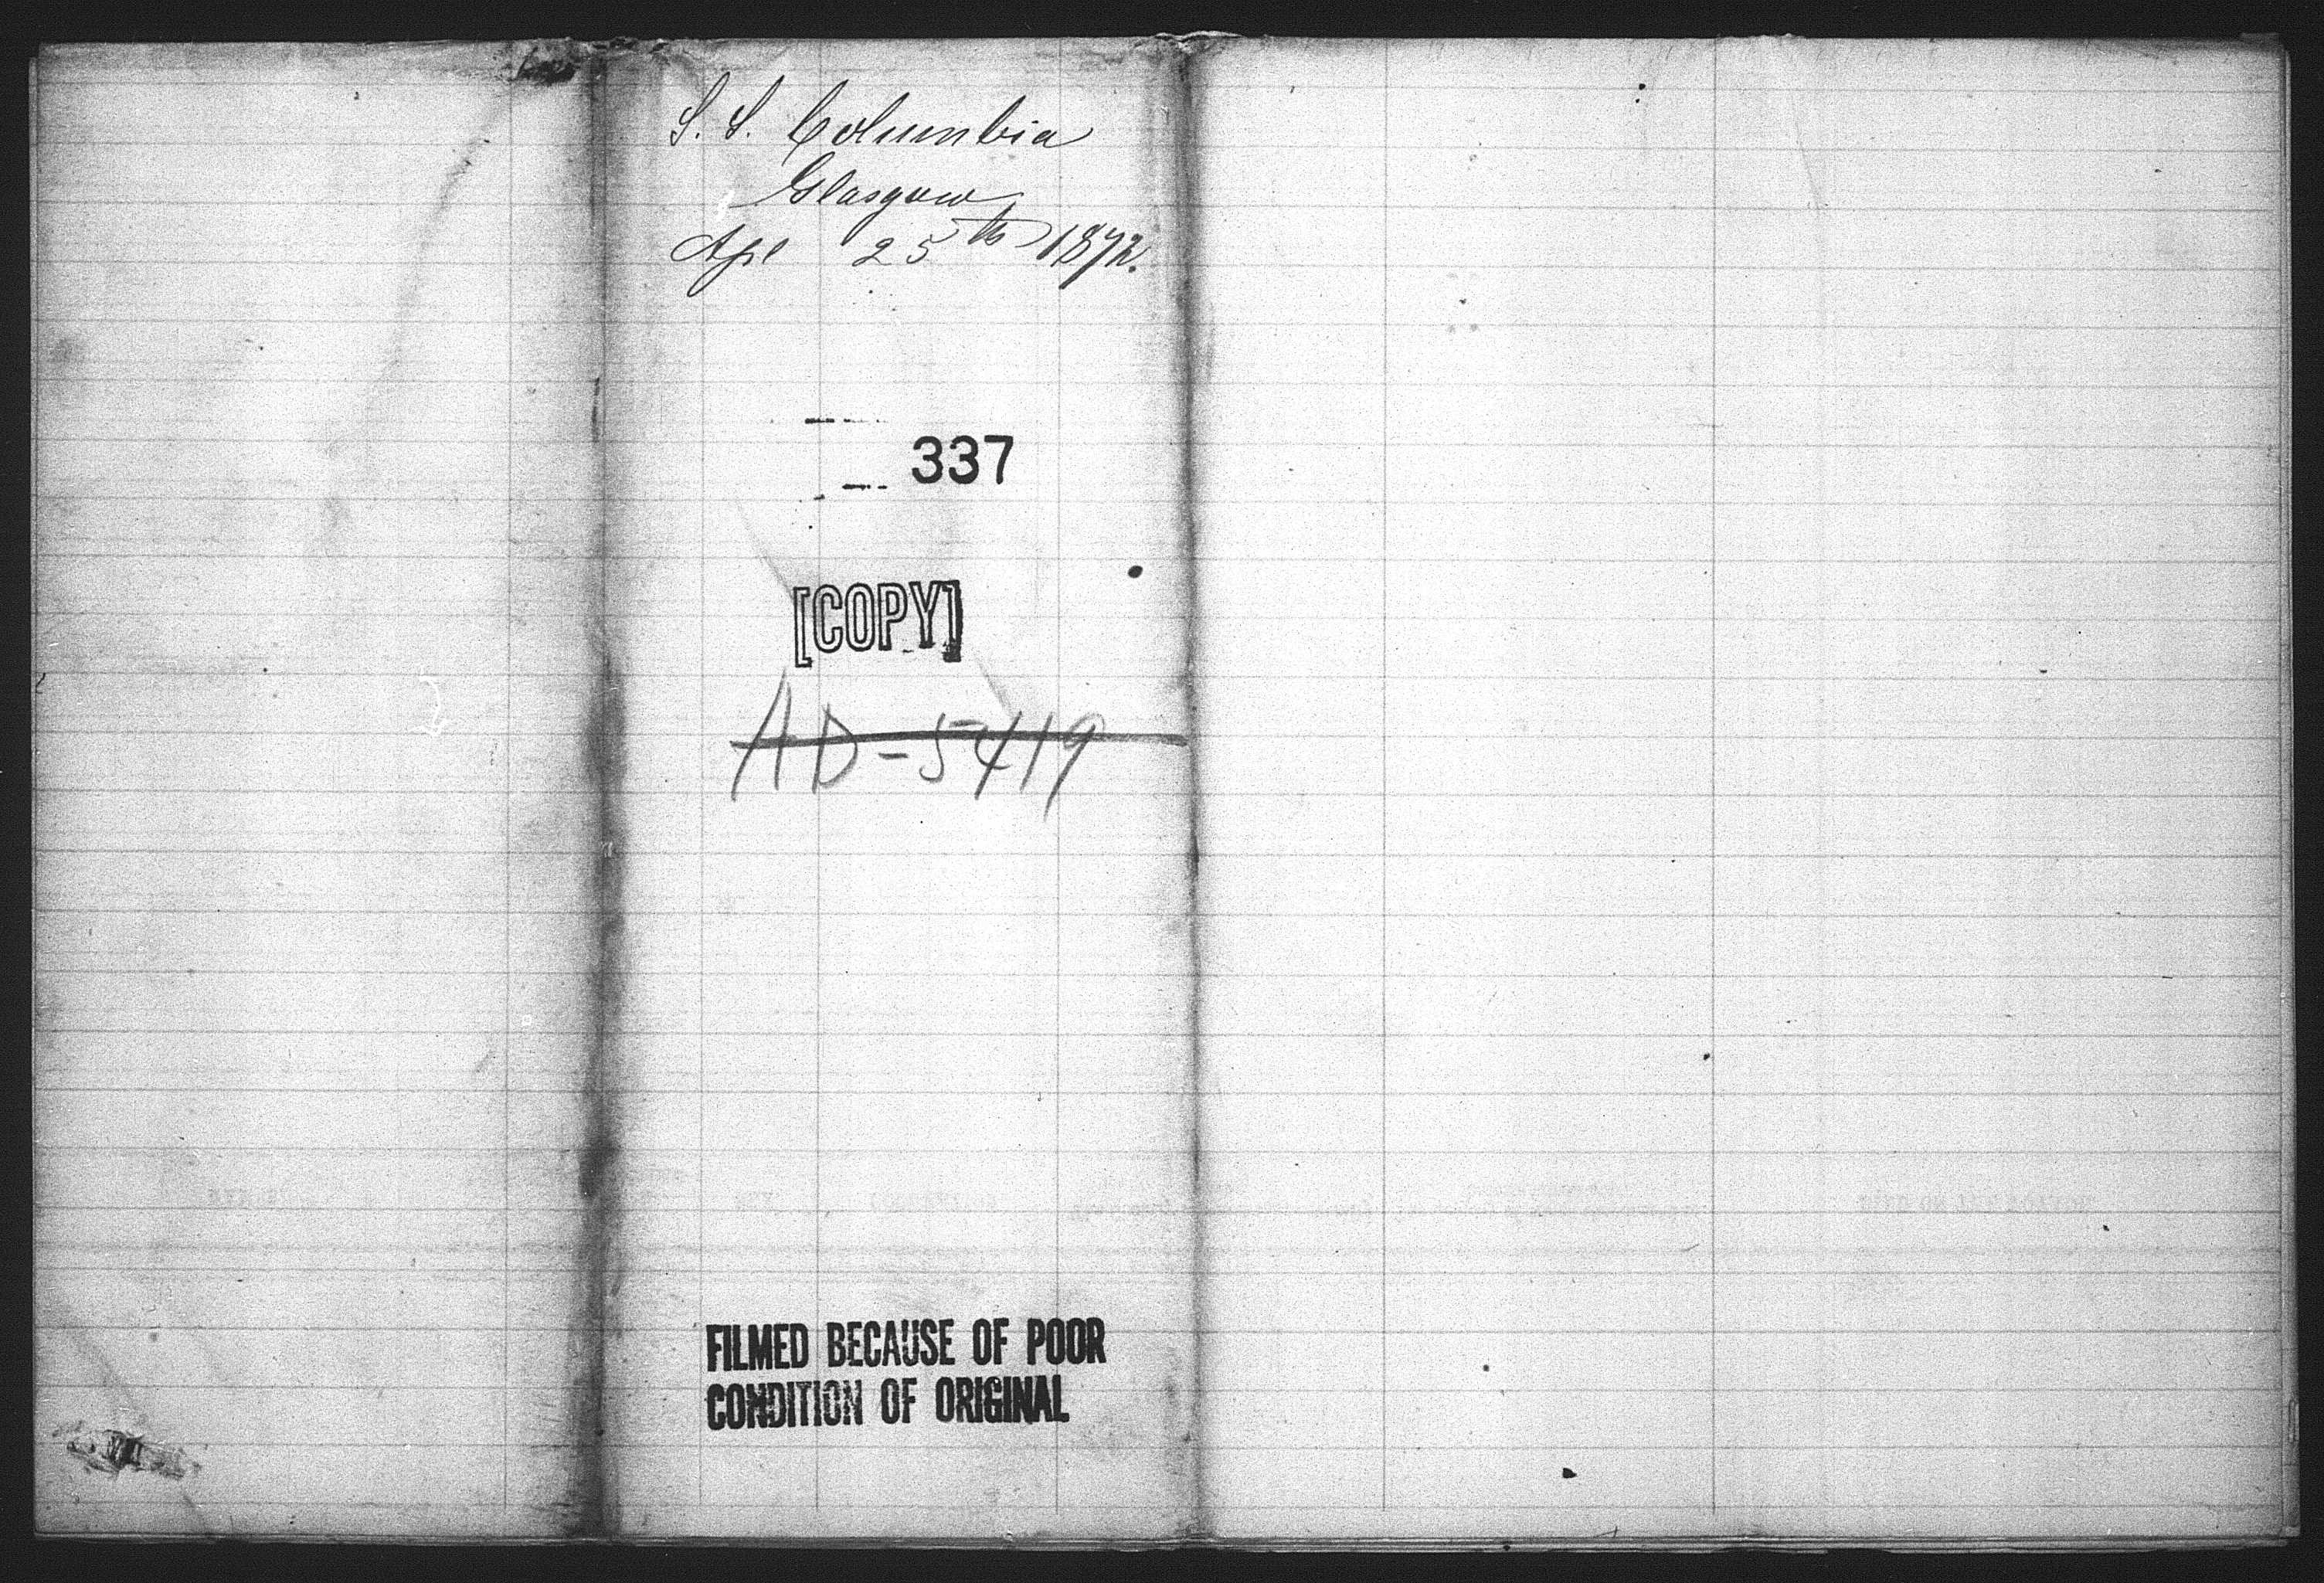 S. S. Columbia
Glasgow
Apl 25th 1872.
337
[COPY]
AD-5419
FILMED BECAUSE OF POOR
CONDITION OF ORIGINAL